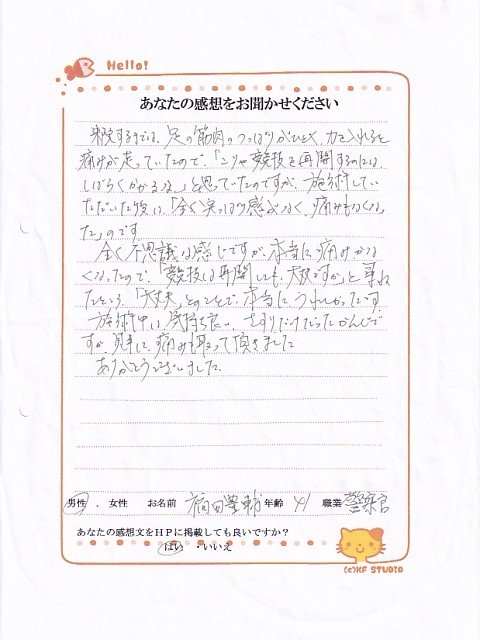 Hello!
あなたの感想をお聞かせください
来院するまでは、足の筋肉のつっぱりがひどく、力を入れると
痛みが走っていたので、「こりゃ競技を再開するのには
しばらくかかるな」と思っていたのですが、施術してい
ただいた後は、「全く突っぱり感がなく、痛みもなくなっ
た」のです
全く不思議な感じですが、本当に痛みがな
くなったので、「競技は再開しても大丈夫ですか」と尋ね
たところ、「大丈夫」とのことで、本当にうれしかったです
施術中は、気持ち良い、さすりだけだったかんじで
すが、見事に痛みを取って頂きました
ありがとうございました。
男性 ・ 女性 お名前 福田 年齢 41 職業 警察官
あなたの感想文をHPに掲載しても良いですか？
はい ・ いいえ
(c)KF STUDIO